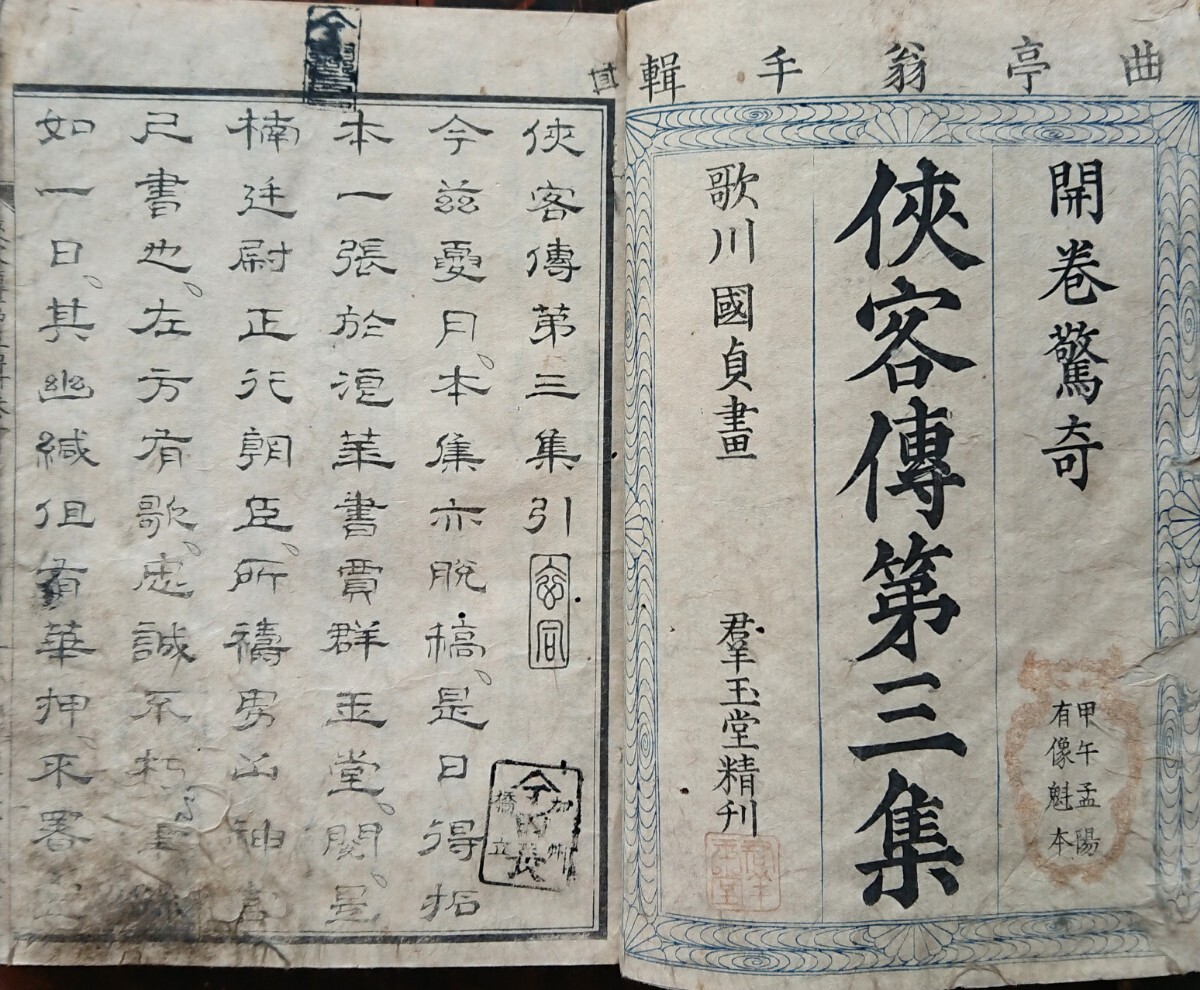 曲亭翁手輯
開卷驚奇
甲午孟陽
有像魁本
俠客傳第三集
歌川國貞畫
羣玉堂精刋
俠客傳第三集引
今茲憂月、本集亦脫稿、是日得拓
本一張於浪華書賈群玉堂。閱、是
楠廷尉正行朝臣、所禱男山神
已書也、左方有歌、忠誠不朽
如一日、其幽緘但有華押、不署
加州
橋立